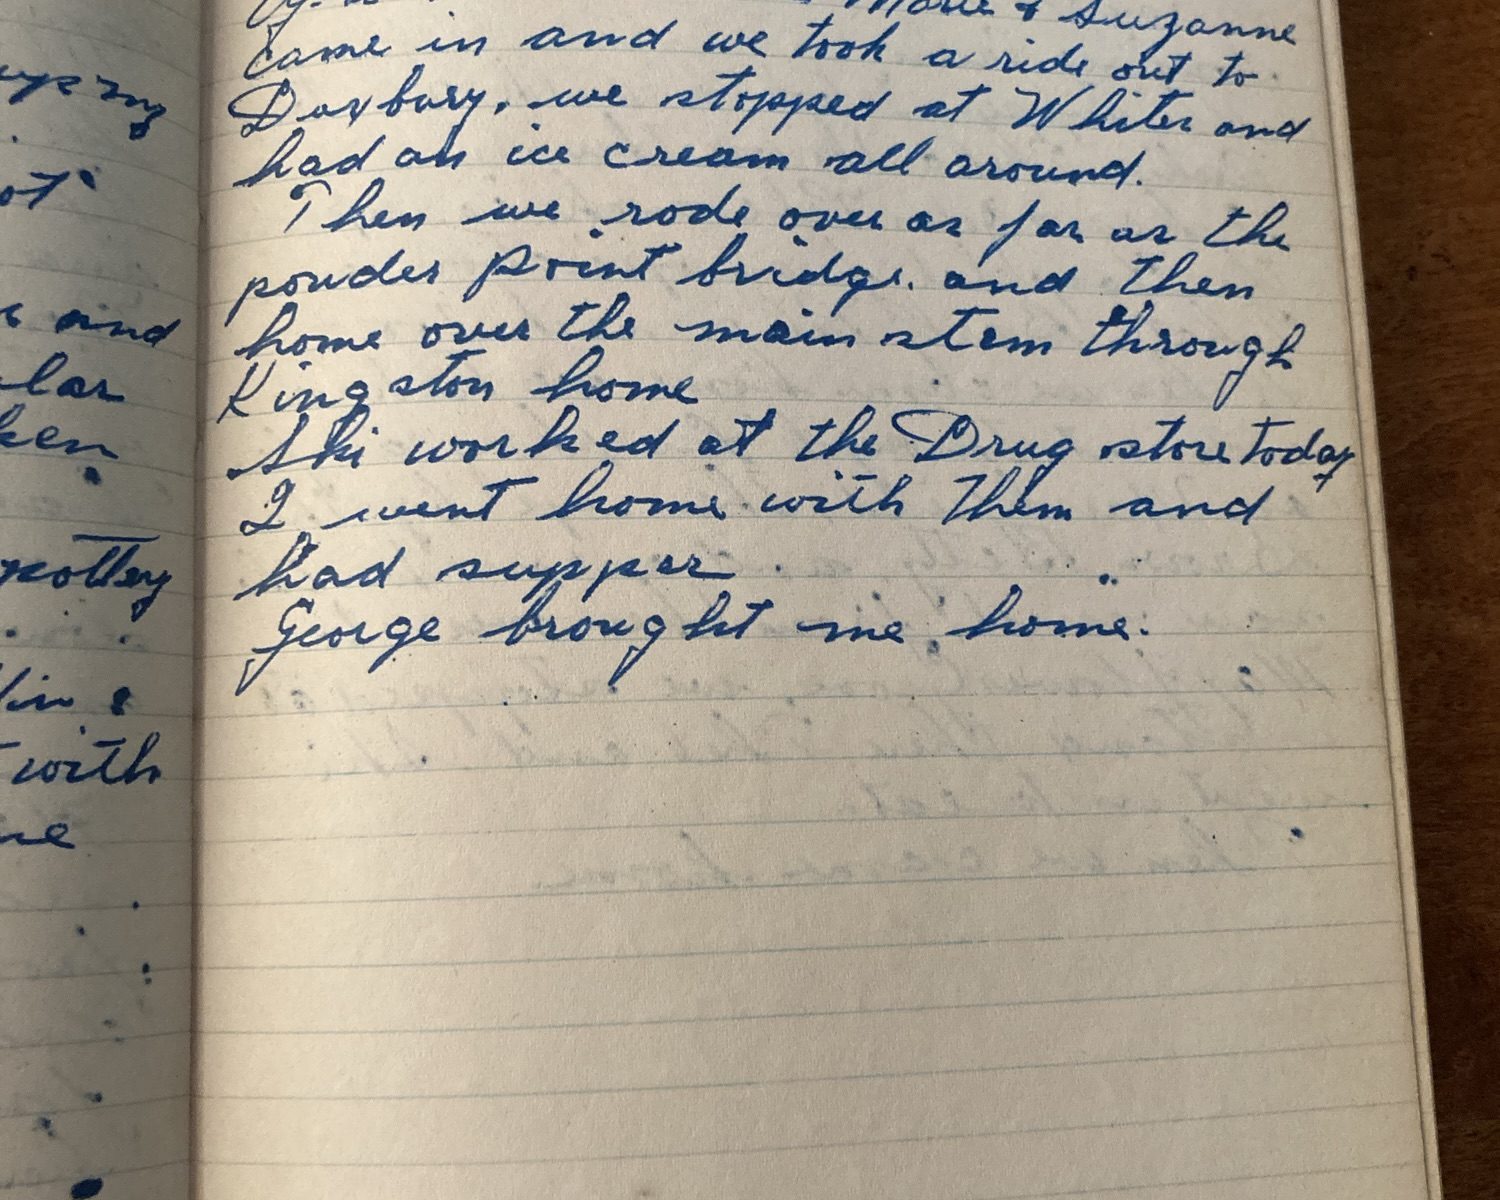 Marie & Suzanne
came in and we took a ride out to
Duxbury. we stopped at Whites and
had an ice cream all around.
Then we rode over as far as the
powder point bridge. and then
home over the main stem through
Kingston home
Ski worked at the Drug store today
I went home with them and
had supper
George brought me home.
and
lar
ken
pottery
with